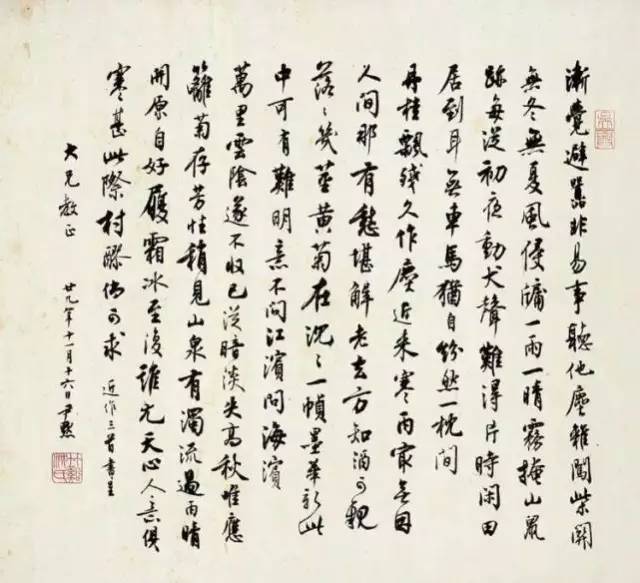 漸覺避囂非易事聽他塵雜闖柴關
無冬無夏風侵牖一雨一晴霧掩山鼠
跡每從初夜動犬聲難得片時閑田
居到耳無車馬猶自紛然一枕間
丹桂飄殘久作塵近来寒雨寂無因
人間那有愁堪解老去方知酒可親
落〻幾莖黄菊在沉〻一幀墨華新此
中可有難明意不問江濱問海濱
萬里雲陰遂不收已從暗淡失高秋惟應
籬菊存芳性稍見山泉有濁流過雨晴
開原自好履霜冰至復誰尤天心人意俱
寒甚此際村醪倘可求 近作三首書呈
大兄教正 廿九年十一月十六日 尹默